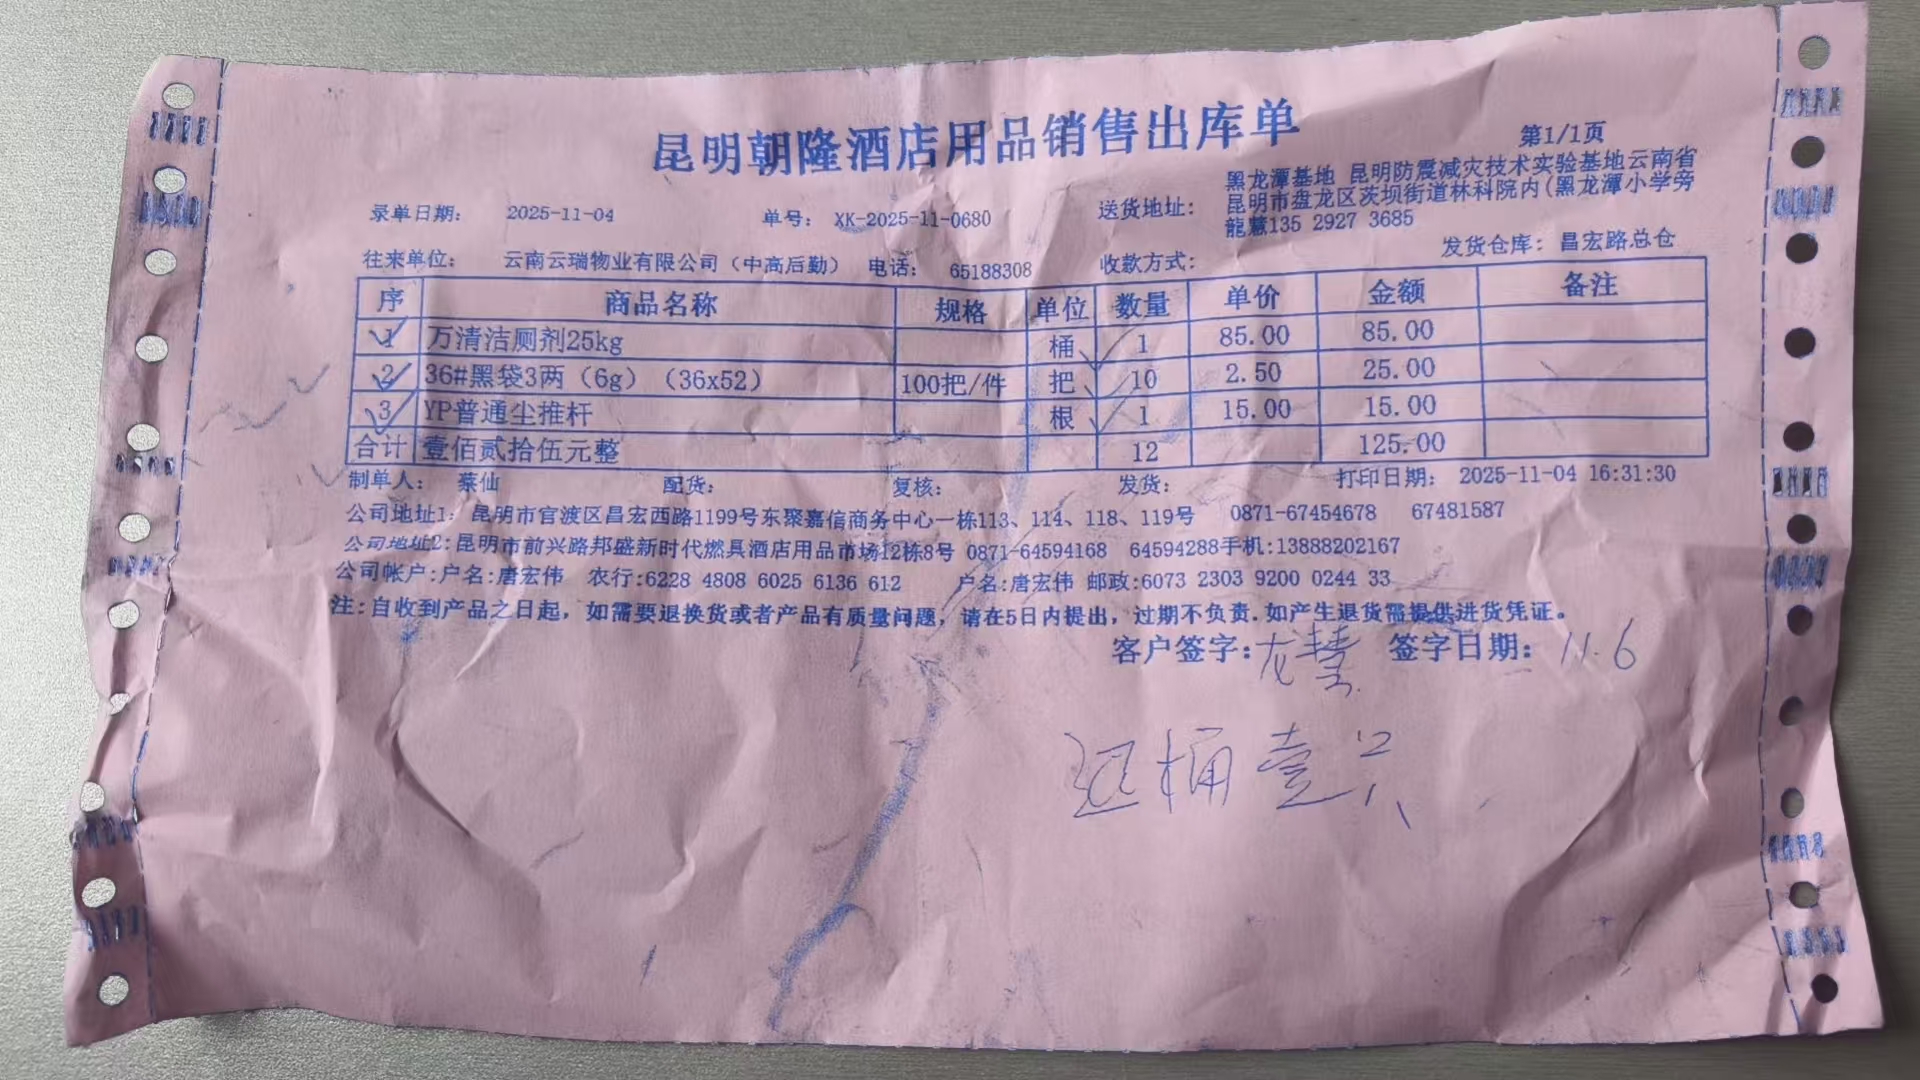 昆明朝隆酒店用品销售出库单
第1/1页
录单日期： 2025-11-04 单号： XK-2025-11-0680 送货地址： 黑龙潭基地 昆明防震减灾技术实验基地云南省
昆明市盘龙区茨坝街道林科院内(黑龙潭小学旁
龍慧135 2927 3685
往来单位： 云南云瑞物业有限公司（中高后勤） 电话： 65188308 收款方式： 发货仓库： 昌宏路总仓
序 商品名称 规格 单位 数量 单价 金额 备注
1 万清洁厕剂25kg 桶 1 85.00 85.00
2 36#黑袋3两（6g）（36x52） 100把/件 把 10 2.50 25.00
3 YP普通尘推杆 根 1 15.00 15.00
合计 壹佰贰拾伍元整 12 125.00
制单人： 蔡仙 配货： 复核： 发货： 打印日期： 2025-11-04 16:31:30
公司地址1：昆明市官渡区昌宏西路1199号东聚嘉信商务中心一栋113、114、118、119号 0871-67454678 67481587
公司地址2:昆明市前兴路邦盛新时代燃具酒店用品市场12栋8号 0871-64594168 64594288手机:13888202167
公司帐户:户名:唐宏伟 农行:6228 4808 6025 6136 612 户名:唐宏伟 邮政:6073 2303 9200 0244 33
注:自收到产品之日起，如需要退换货或者产品有质量问题，请在5日内提出，过期不负责.如产生退货需提供进货凭证。
客户签字:龙慧 签字日期: 11.6
还桶壹只